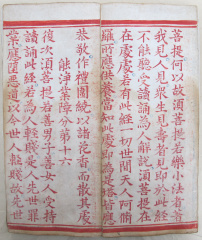 菩提何以故須菩提若樂小法者著
我見人見眾生見壽者見即於此經
不能聽受讀誦為人解說須菩提在
在處處若有此經一切世間天人阿脩
羅所應供養當知此處即為是塔皆應
恭敬作禮圍繞以諸花香而散其處
能淨業障分第十六
復次須菩提若善男子善女人受持
讀誦此經若為人輕賤是人先世罪
業應墮惡道以今世人輕賤故先世